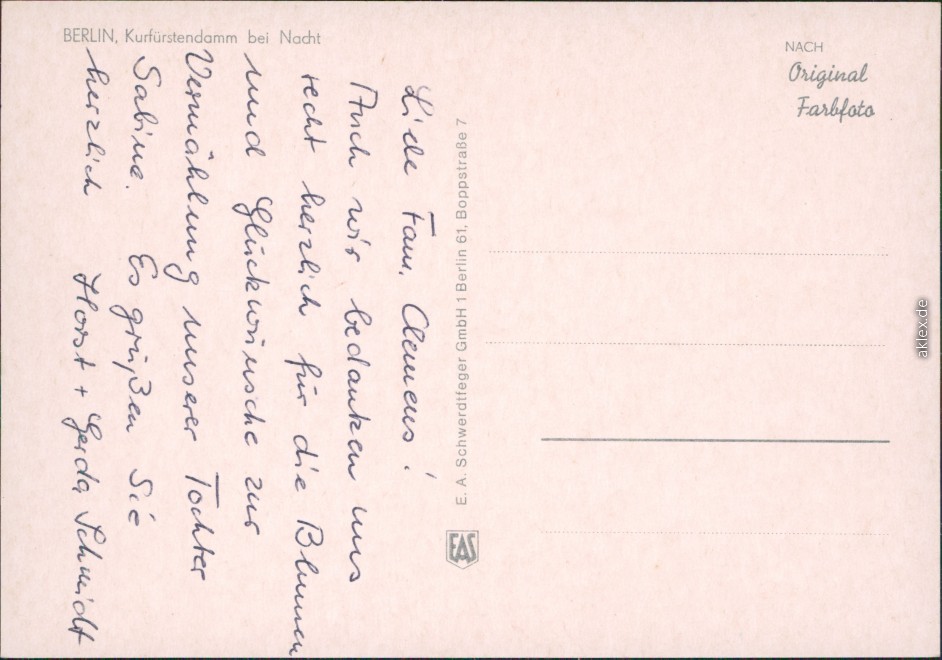 BERLIN, Kurfürstendamm bei Nacht
NACH
Original
Farbfoto
Liebe Fam. Clemens!
Auch wir bedanken uns
recht herzlich für die Blumen
und Glückwünsche zur
Vermählung unserer Tochter
Sabine. Es grüßen Sie
herzlich Horst + Gerda Schmidt
E. A. Schwerdtfeger GmbH 1 Berlin 61, Boppstraße 7
EAS
aklex.de